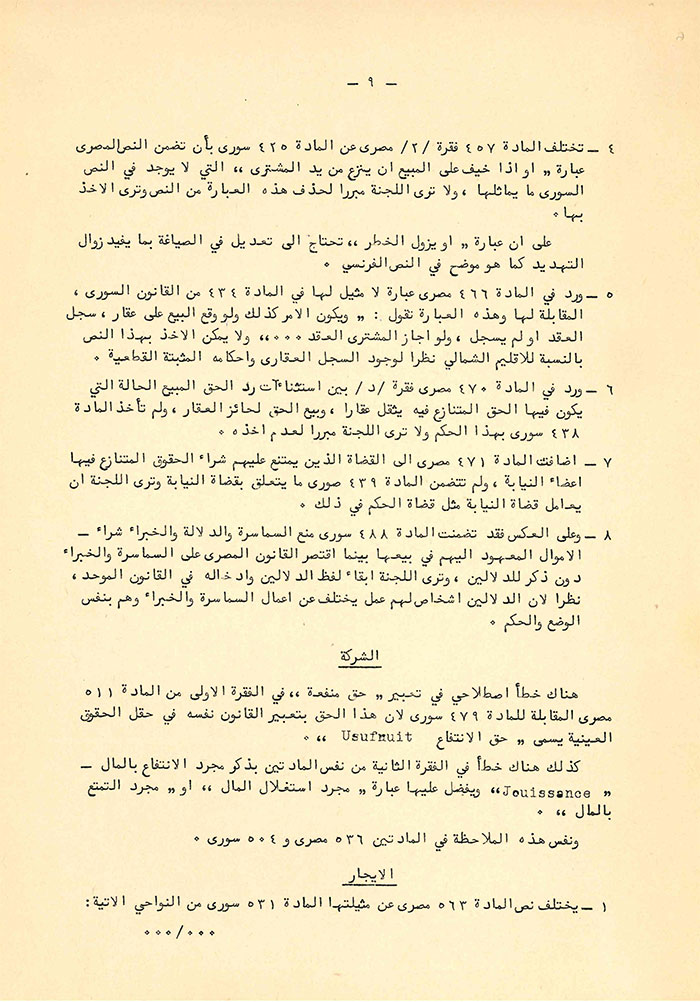 — ٩ —
٤ — تختلف المادة ٤٥٧ فقرة /٢/ مصرى عن المادة ٤٢٥ سورى بأن تضمن النص المصرى
عبارة „ او اذا خيف على المبيع ان ينزع من يد المشترى ،، التي لا يوجد في النص
السورى ما يماثلها ، ولا ترى اللجنة مبررا لحذف هذه العبارة من النص وترى الاخذ
بها ٠
على ان عبارة „ او يزول الخطر ،، تحتاج الى تعديل في الصياغة بما يفيد زوال
التهديد كما هو موضح في النص الفرنسي ٠
٥ — ورد في المادة ٤٦٦ مصرى عبارة لا مثيل لها في المادة ٤٣٤ من القانون السورى ،
المقابلة لها وهذه العبارة تقول : „ ويكون الامر كذلك ولو وقع البيع على عقار ، سجل
العقد او لم يسجل ، ولو اجاز المشترى العقد ٠٠٠،، ولا يمكن الاخذ بهذا النص
بالنسبة للاقليم الشمالي نظرا لوجود السجل العقارى واحكامه المثبتة القطعية ٠
٦ — ورد في المادة ٤٧٠ مصرى فقرة /د/ بين استثناءات رد الحق المبيع الحالة التي
يكون فيها الحق المتنازع فيه يثقل عقارا ، وبيع الحق لحائز العقار ، ولم تأخذ المادة
٤٣٨ سورى بهذا الحكم ولا ترى اللجنة مبررا لعدم اخذه ٠
٧ — اضافت المادة ٤٧١ مصرى الى القضاة الذين يمتنع عليهم شراء الحقوق المتنازع فيها
اعضاء النيابة ، ولم تتضمن المادة ٤٣٩ صورى ما يتعلق بقضاة النيابة وترى اللجنة ان
يعامل قضاة النيابة مثل قضاة الحكم في ذلك ٠
٨ — وعلى العكس فقد تضمنت المادة ٤٨٨ سورى منع السماسرة والدلالة والخبراء شراء —
الاموال المعهود اليهم في بيعها بينما اقتصر القانون المصرى على السماسرة والخبراء
دون ذكر للدلالين ، وترى اللجنة ابقاء لفظ الدلالين وادخاله في القانون الموحد ،
نظرا لان الدلالين اشخاص لهم عمل يختلف عن اعمال السماسرة والخبراء وهم بنفس
الوضع والحكم ٠
الشركة
هناك خطأ اصطلاحي في تعبير „ حق منفعة ،، في الفقرة الاولى من المادة ٥١١
مصرى المقابلة للمادة ٤٧٩ سورى لان هذا الحق بتعبير القانون نفسه في حقل الحقوق
العينية يسمى „ حق الانتفاع Usufruit ،، ٠
كذلك هناك خطأ في الفقرة الثانية من نفس المادتين بذكر مجرد الانتفاع بالمال —
„ Jouissance ،، ويفضل عليها عبارة „ مجرد استغلال المال ،، او „ مجرد التمتع
بالمال ،، ٠
ونفس هذه الملاحظة في المادتين ٥٣٦ مصرى و ٥٠٤ سورى ٠
الايجار
١ — يختلف نص المادة ٥٦٣ مصرى عن مثيلتها المادة ٥٣١ سورى من النواحي الاتية :
٠٠٠/٠٠٠